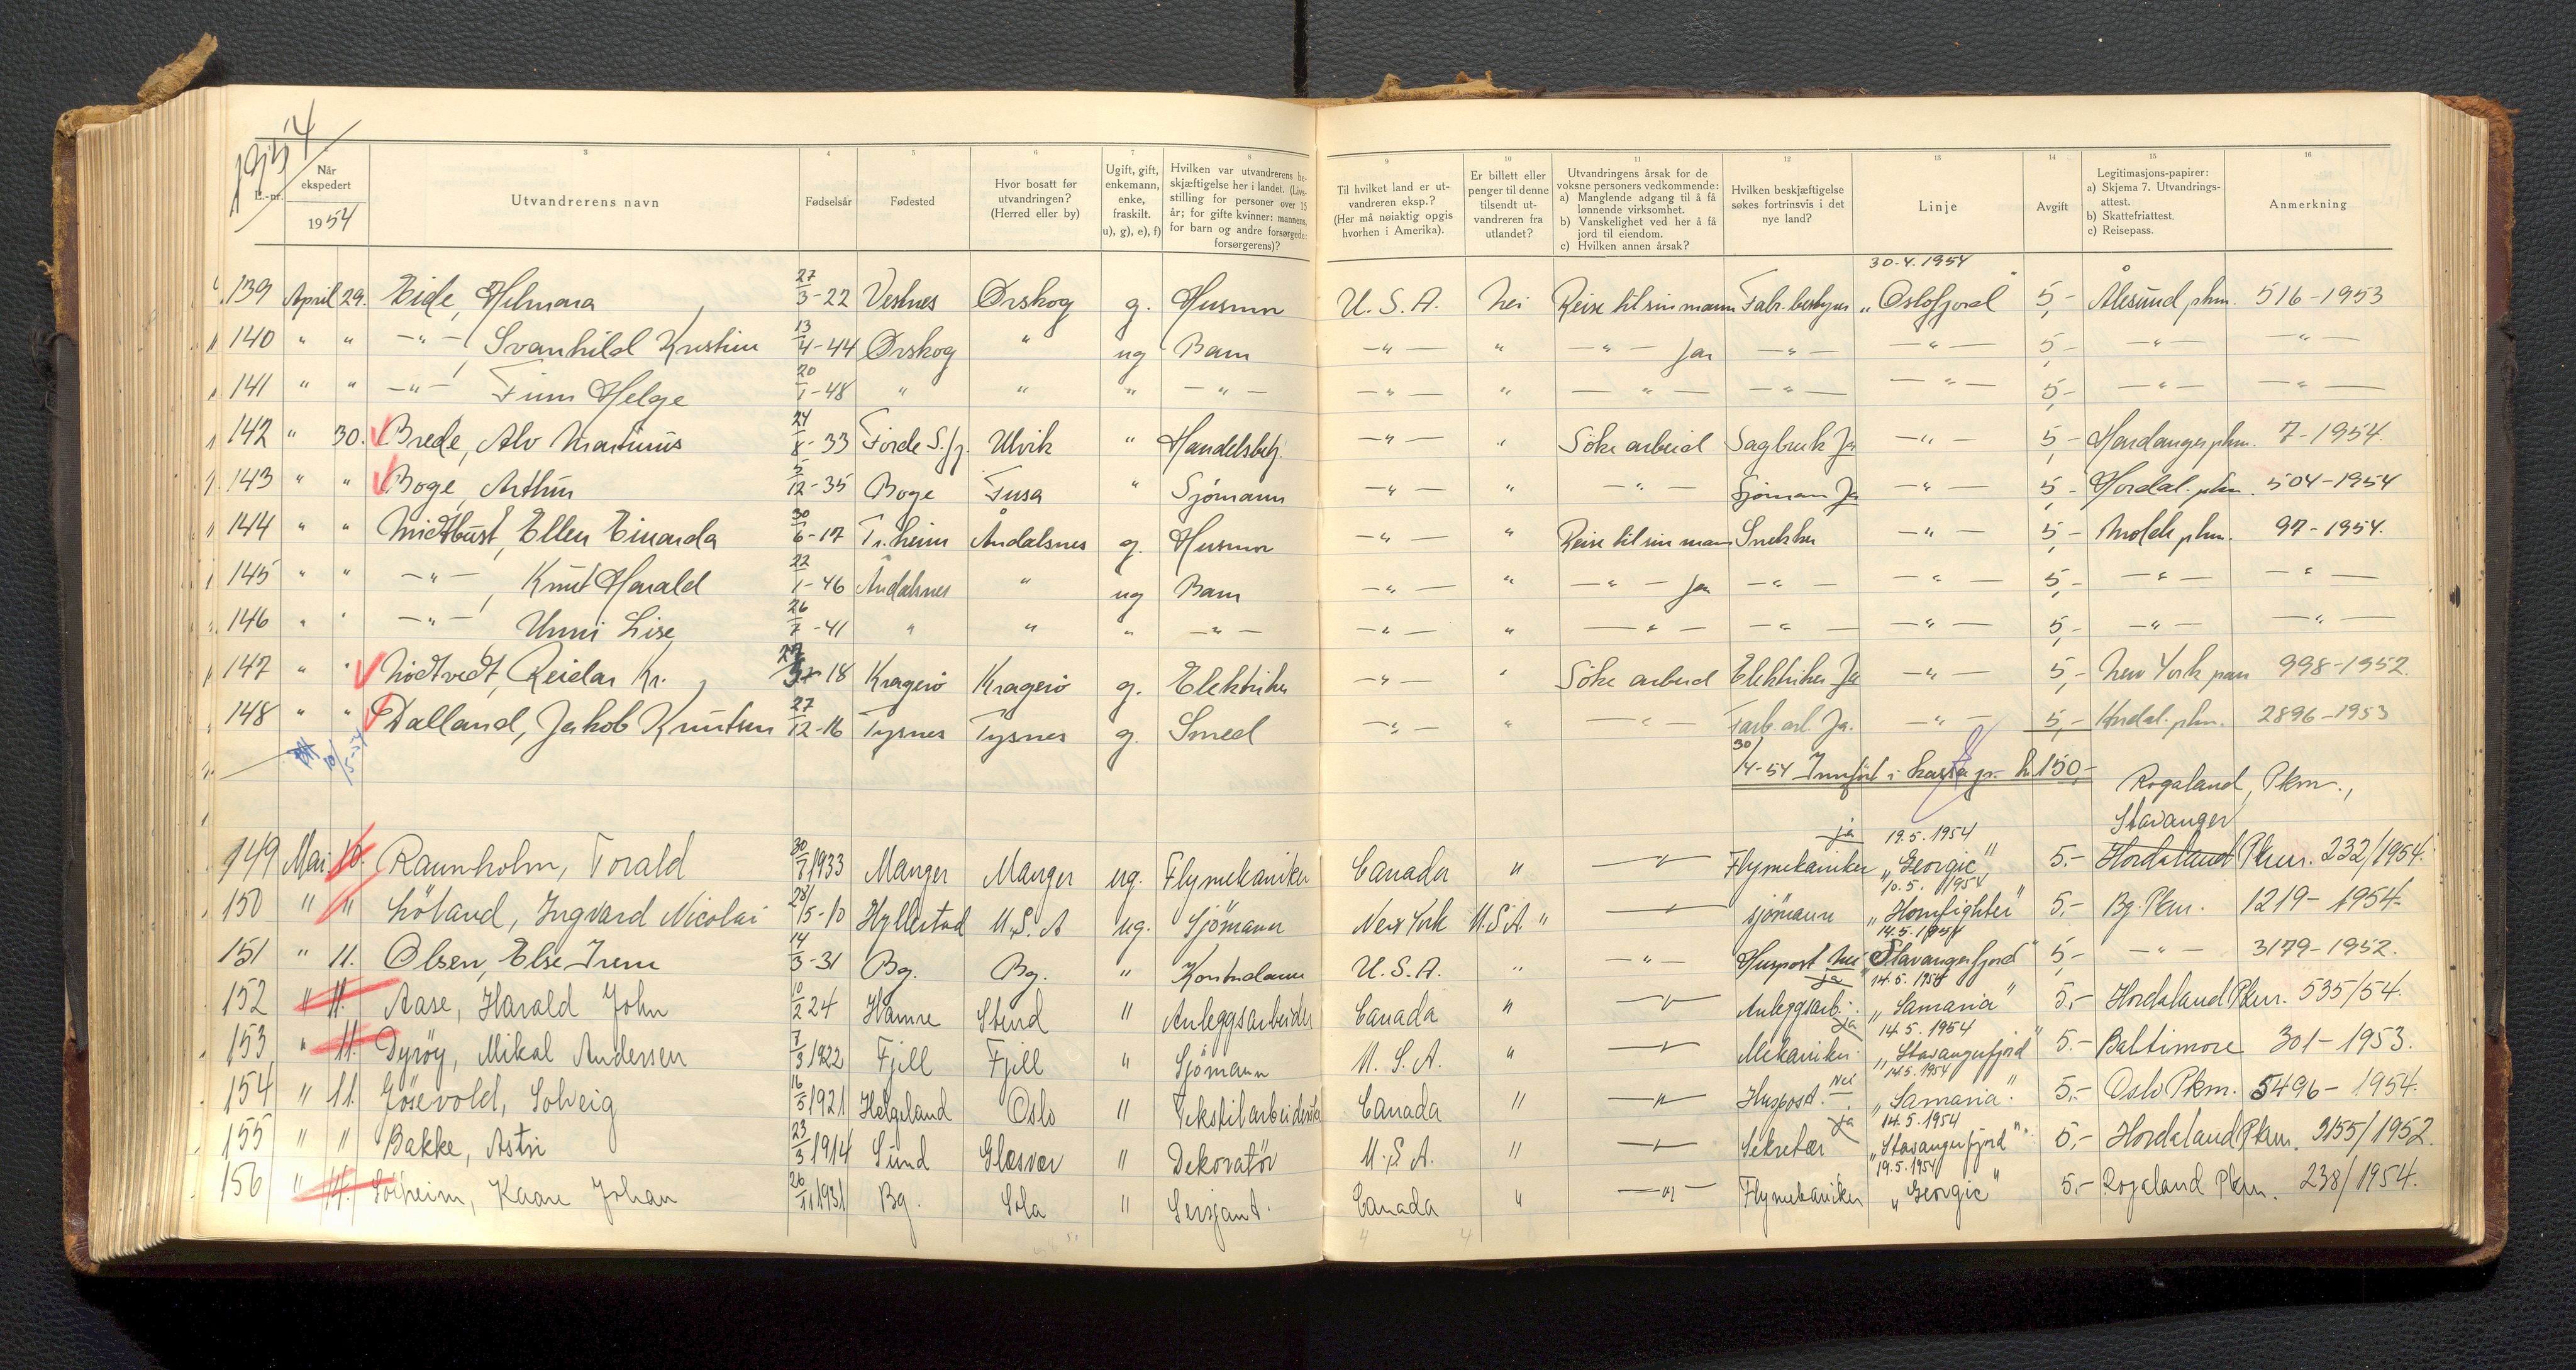 1954
L.-nr.
Når ekspedert 1954
3 Utvandrerens navn
4 Fødselsår
5 Fødested
6 Hvor bosatt før utvandringen? (Herred eller by)
7 Ugift, gift, enkemann, enke, fraskilt. u), g), e), f)
8 Hvilken var utvandrerens beskjæftigelse her i landet. (Livsstilling for personer over 15 år; for gifte kvinner: mannens, for barn og andre forsørgede: forsørgerens)?
9 Til hvilket land er utvandreren eksp.? (Her må nøiaktig opgis hvorhen i Amerika).
10 Er billett eller penger til denne tilsendt utvandreren fra utlandet?
11 Utvandringens årsak for de voksne personers vedkommende: a) Manglende adgang til å få lønnende virksomhet. b) Vanskelighet ved her å få jord til eiendom. c) Hvilken annen årsak?
12 Hvilken beskjæftigelse søkes fortrinsvis i det nye land?
13 Linje
14 Avgift
15 Legitimasjons-papirer: a) Skjema 7. Utvandrings-attest. b) Skattefriattest. c) Reisepass.
16 Anmerkning
30.4.1954
139 April 29. Eide, Helmara 27/3-22 Vestnes Ørskog g. Husmor U.S.A. Nei Reise til sin mann Fabr. bestyrer „Oslofjord" 5,- Ålesund pkm. 516-1953
140 " " -"- , Svanhild Kristin 13/4-44 Ørskog " ug Barn -"- " -"- Ja -"- -"- 5,- -"- -"-
141 " " -"- , Finn Helge 20/1-48 " " " -"- -"- " -"- -"- -"- 5,- -"- -"-
142 " 30. Brede, Alv Martinus 24/8-33 Førde S.fj. Ulvik " Handelsbetj. -"- " Söke arbeid Sagbruk Ja -"- 5,- Hardanger pkm. 7-1954.
143 " " Boge, Arthur 5/12-35 Boge Fusa " Sjömann -"- " -"- Sjömann Ja -"- 5,- Hordal. pkm. 504-1954
144 " " Midtbust, Ellen Einarda 30/6-17 Tr.heim Åndalsnes g. Husmor -"- " Reise til sin mann Snekker -"- 5,- Molde pkm. 97-1954.
145 " " -"- , Knut Harald 22/1-46 Åndalsnes " ug Barn -"- " -"- Ja -"- -"- 5,- -"- -"-
146 " " -"- , Unni Lise 26/7-41 " " " -"- -"- " -"- -"- -"- 5,- -"- -"-
147 " " Nödtvedt, Reidar Kr. 18 Kragerö Kragerö g. Elektriker -"- " Söke arbeid Elektriker Ja -"- 5,- New York pass 998-1952.
148 " " Dalland, Jakob Knutsen 27/12-16 Tysnes Tysnes g. Smed -"- " -"- Fabr. arb. Ja. -"- 5,- Hordal. pkm. 2896-1953
10/5-54
30/4-54 Innfört i kassa pr. kr 150,-
Rogaland, Pkm.,
Stavanger
ja 19.5.1954
149 Mai 10. Raunholm, Torald 30/7 1933 Manger Manger ug. Flymekaniker Canada " -"- Flymekaniker „Georgic" 5.- Hordaland Pkm. 232/1954.
10.5.1954
150 " " Löland, Ingvard Nicolai 28/5-10 Hyllestad U.S.A ug. Sjömann New York U.S.A. " -"- sjömann „Homfighter" 5,- Bg. Pkm. 1219-1954.
14.5.1954
151 " 11. Olsen, Else Irene 14/3-31 Bg. Bg. " Kontordame U.S.A. " -"- Huspost Nei „Stavangerfjord" 5,- -"- 3179-1952.
ja 14.5.1954
152 " 11. Aase, Harald John 10/2 24 Hamre Stend " Anleggsarbeider Canada " -"- Anleggsarb. „Samaria" 5,- Hordaland Pkm. 535/54.
ja 14.5.1954
153 " 11. Dyröy, Mikal Andersen 7/3 1922 Fjell Fjell " Sjömann U.S.A. " -"- Mekaniker „Stavangerfjord" 5.- Baltimore 301-1953.
Nei 14.5.1954
154 " 11. Gösevold, Solveig 16/5 1921 Helgeland Oslo " Tekstilarbeiderske Canada " -"- Huspost. „Samaria" 5,- Oslo Pkm. 5496-1954.
ja 14.5.1954
155 " " Bakke, Astri 23/3 1914 Sund Glesvær " Dekoratör U.S.A. " -"- Sekretær „Stavangerfjord" 5,- Hordaland Pkm. 3155/1952.
19.5.1954
156 " 11. Solheim, Kaare Johan 26/11 1931 Bg. Sola " Sersjant. Canada " -"- Flymekaniker „Georgic" 5.- Rogaland Pkm. 238/1954.